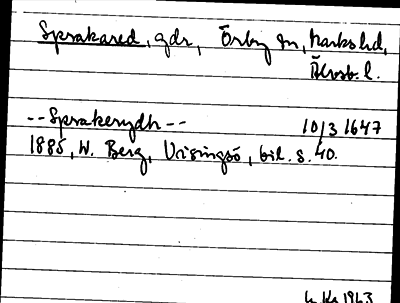 Sprakared, gdr, Örby sn, Marks hd,
Älvsb. l.
-- Sprakerydh -- 10/3 1647
1885, W. Berg, Visingsö, bil. s. 40.
1963